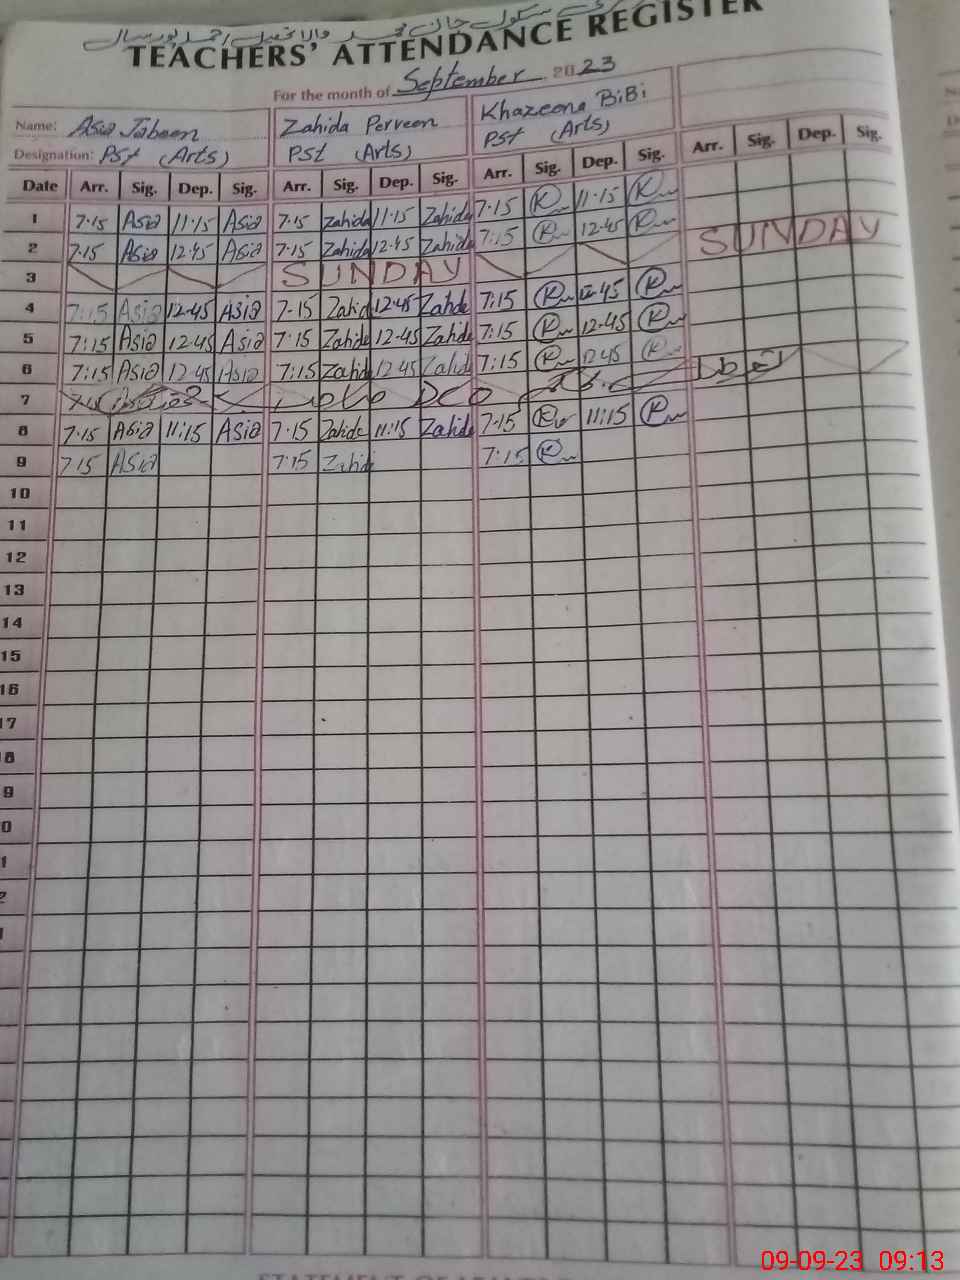 سکول
TEACHERS' ATTENDANCE REGISTER
For the month of September 2023
Name: Asia Jabeen Zahida Perveen Khazeena BiBi
Designation: PSt (Arts) PSt (Arts) PSt (Arts)
Date Arr. Sig. Dep. Sig. Arr. Sig. Dep. Sig. Arr. Sig. Dep. Sig. Arr. Sig. Dep. Sig.
1 7·15 Asia 11·15 Asia 7·15 Zahida 11·15 Zahida 7·15 K 11·15 K
2 7·15 Asia 12·45 Asia 7·15 Zahida 12·45 Zahida 7:15 K 12·45 K SUNDAY
3 SUNDAY
4 7:15 Asia 12·45 Asia 7-15 Zahid 12·45 Zahde 7:15 K 12-45 K
5 7:15 Asia 12·45 Asia 7·15 Zahide 12-45 Zahide 7:15 K 12·45 K
6 7:15 Asia 12·45 Asia 7:15 Zahida 12 45 Zahid 7:15 K 12 45 K
7 7:15 DCO
8 7·15 Asia 11:15 Asia 7·15 Zahide 11:15 Zahide 7-15 K 11:15 K
9 7:15 Asia 7:15 Zahid 7:15 K
10
11
12
13
14
15
16
17
8
9
0
1
2
09-09-23 09:13